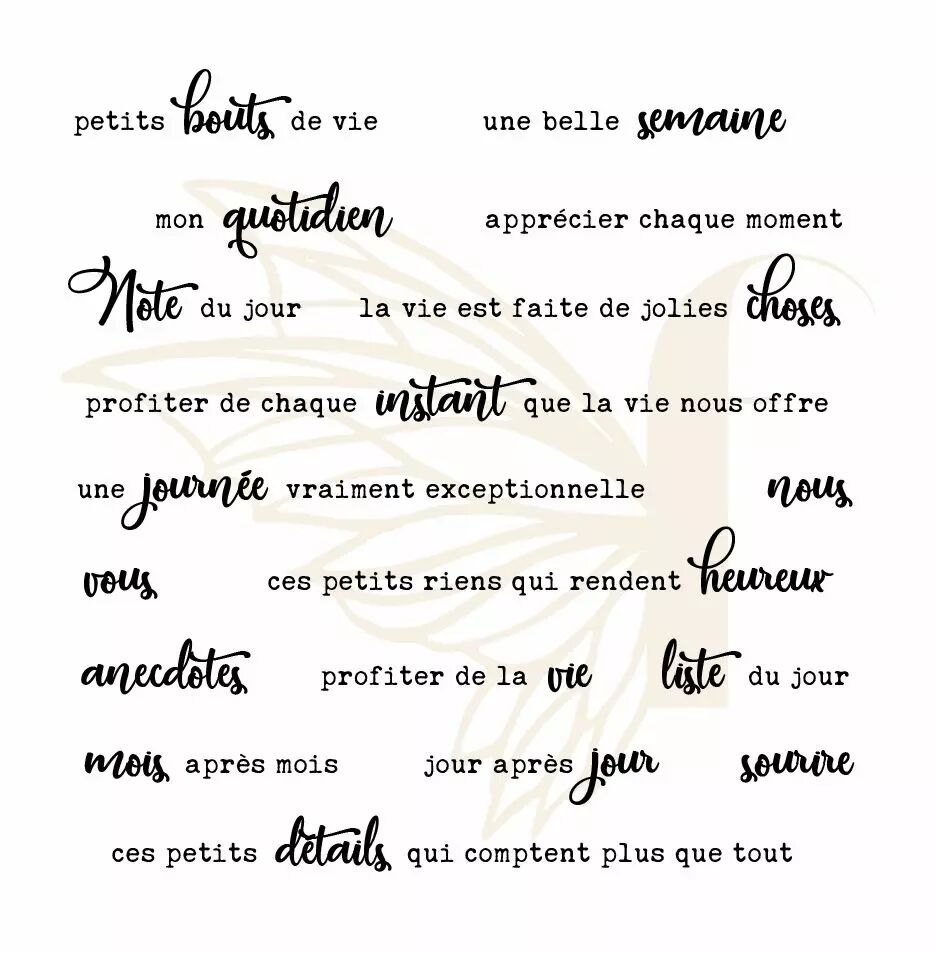 petits bouts de vie
une belle semaine
mon quotidien
apprécier chaque moment
Note du jour
la vie est faite de jolies choses
profiter de chaque instant que la vie nous offre
une journée vraiment exceptionnelle
nous
vous
ces petits riens qui rendent heureux
anecdotes
profiter de la vie
liste du jour
mois après mois
jour après jour
sourire
ces petits détails qui comptent plus que tout